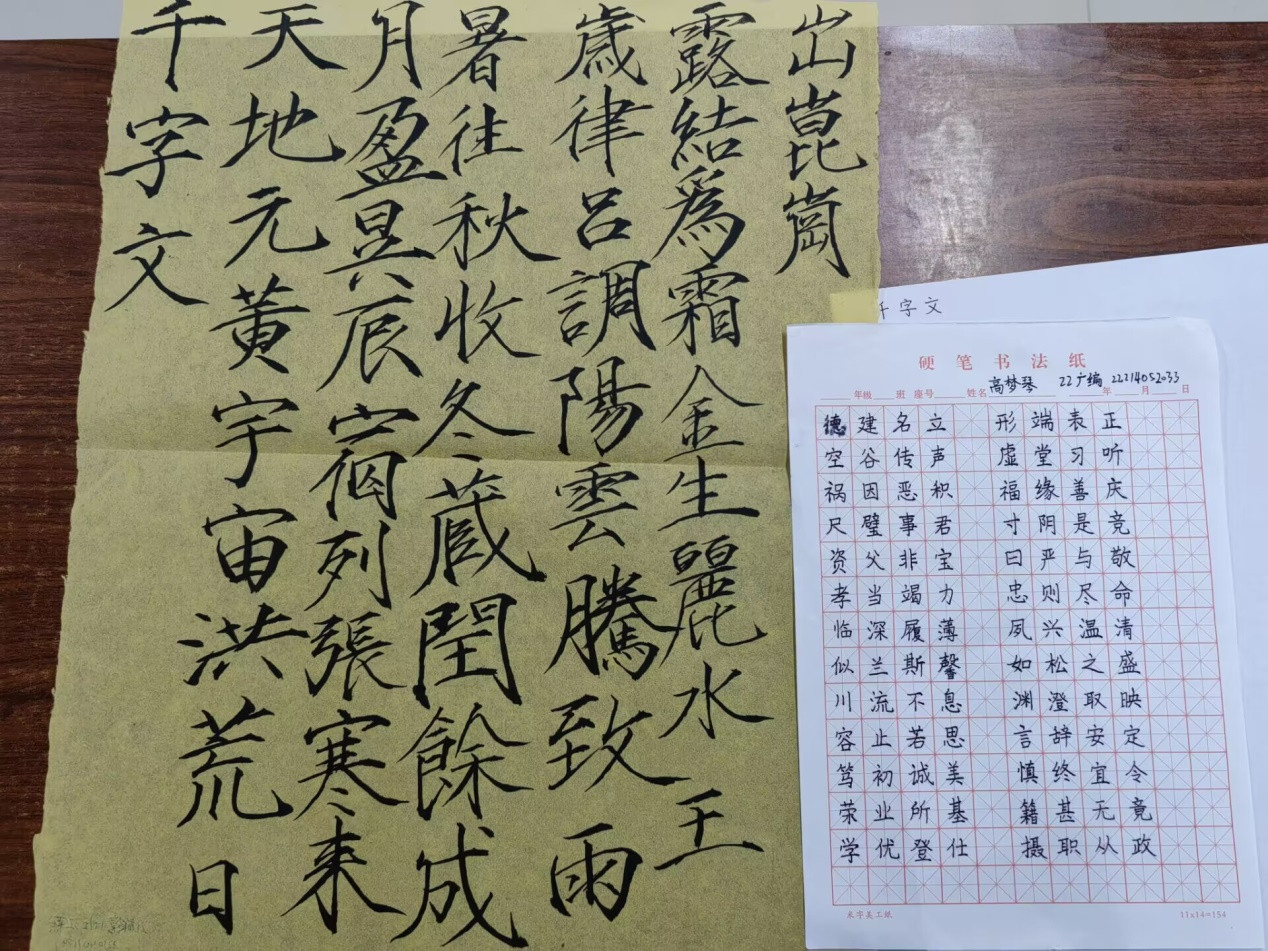 千字文
天地元黃宇宙洪荒日
月盈昃辰宿列張寒来
暑往秋收冬蔵閏餘成
歲律呂調陽雲騰致雨
露結爲霜金生麗水王
出崑崗
千字文
硬笔书法纸
年级 班 座号 姓名 高梦琴 22广编 22214052033 年 月 日
德建名立 形端表正
空谷传声 虚堂习听
祸因恶积 福缘善庆
尺璧事君 寸阴是竞
资父非宝 曰严与敬
孝当竭力 忠则尽命
临深履薄 夙兴温清
似兰斯馨 如松之盛
川流不息 渊澄取映
容止若思 言辞安定
笃初诚美 慎终宜令
荣业所基 籍甚无竟
学优登仕 摄职从政
11x14=154